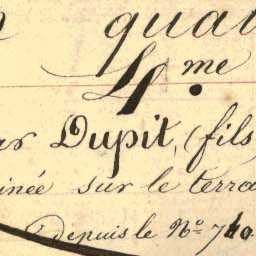 quat
4.me
ar Dupit, (fils
inée sur le terra
(depuis le No. 740